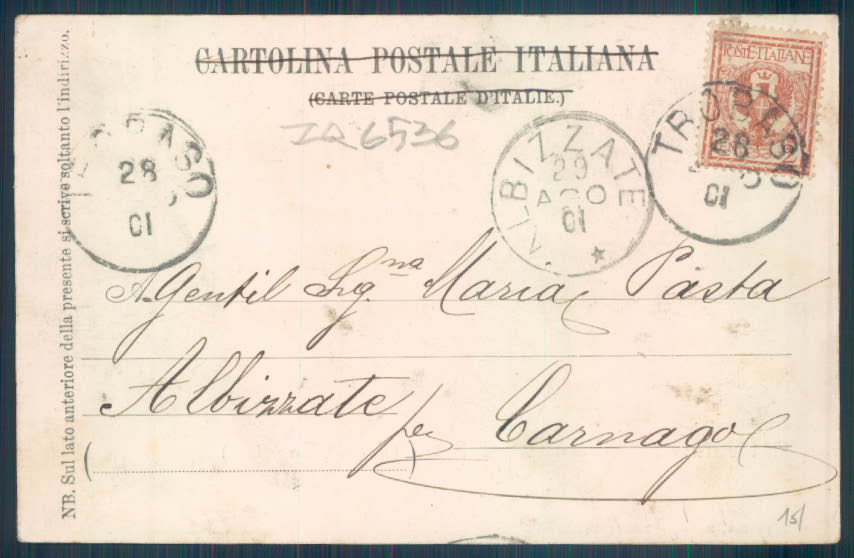 CARTOLINA POSTALE ITALIANA
(CARTE POSTALE D'ITALIE.)
IQ6536
POSTE·ITALIANE
TROBASO
28
01
ALBIZZATE
29
AGO
01
TROBASO
28
01
A Gentil Sig.na Maria Pasta
Albizzate per Carnago
NB. Sul lato anteriore della presente si scrive soltanto l'indirizzo.
15/